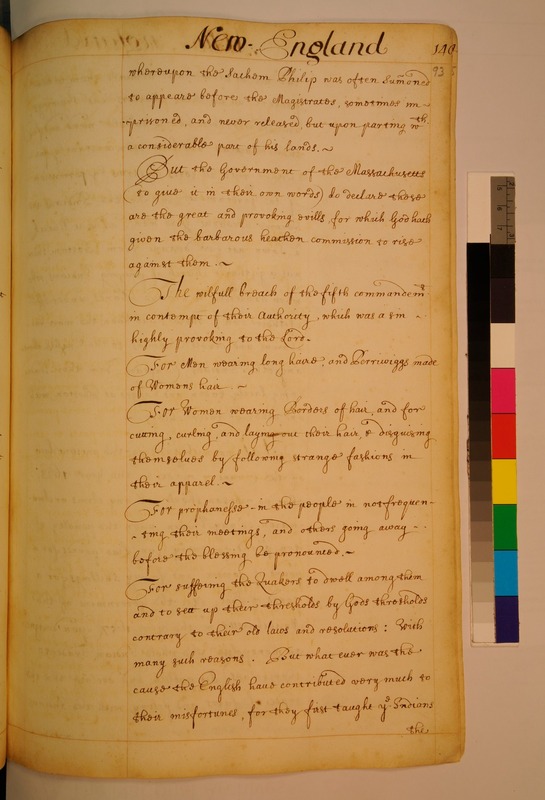 New-England 140
93
whereupon the Sachem Philip was often Sum̃oned
to appeare before the Magistrates, sometimes im-
-prisoned, and never released, but upon parting wth.
a considerable part of his lands. ~
But the Government of the Massachusetts
(to give it in their own words) do declare these
are the great and provoking evills for which God hath
given the barbarous heathen commission to rise
against them. ~
The wilfull breach of the fifth commandemt
in contempt of their Authority, which was a sin
highly provoking to the Lord.
For Men wearing long haire, and Perriwiggs made
of Womens hair. ~
For Women wearing Borders of hair, and for
cutting, curling, and laying out their hair, & disguising
themselves by following strange fashions in
their apparel. ~
For prophanesse in the people in not frequen-
-ting their meetings, and others going away -
before the blessing be pronounced. ~
For suffering the Quakers to dwell among them
and to set up their thresholds by Gods thresholds
contrary to their old laws and resolutions: With
many such reasons. But what ever was the
cause the English have contributed very much to
their misfortunes, for they first taught ye Indians
the